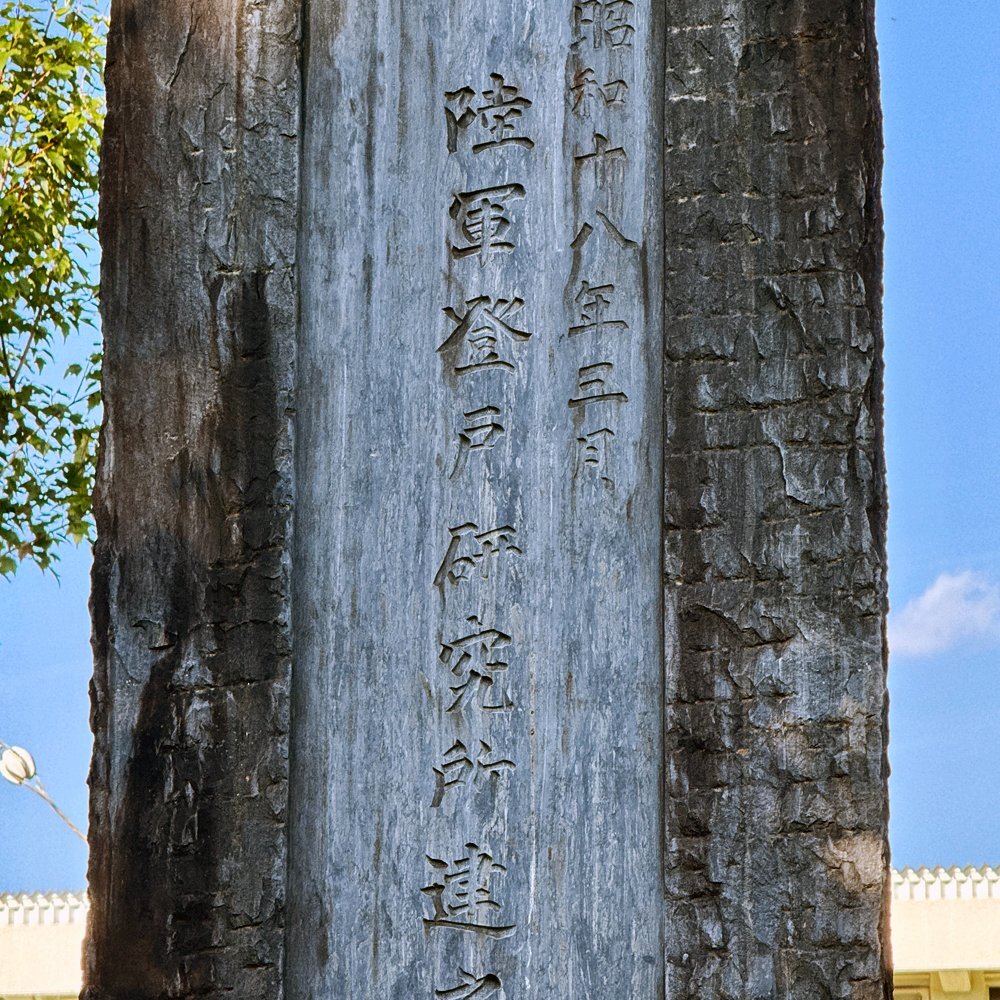 昭和十八年三月
陸軍登戸研究所建之